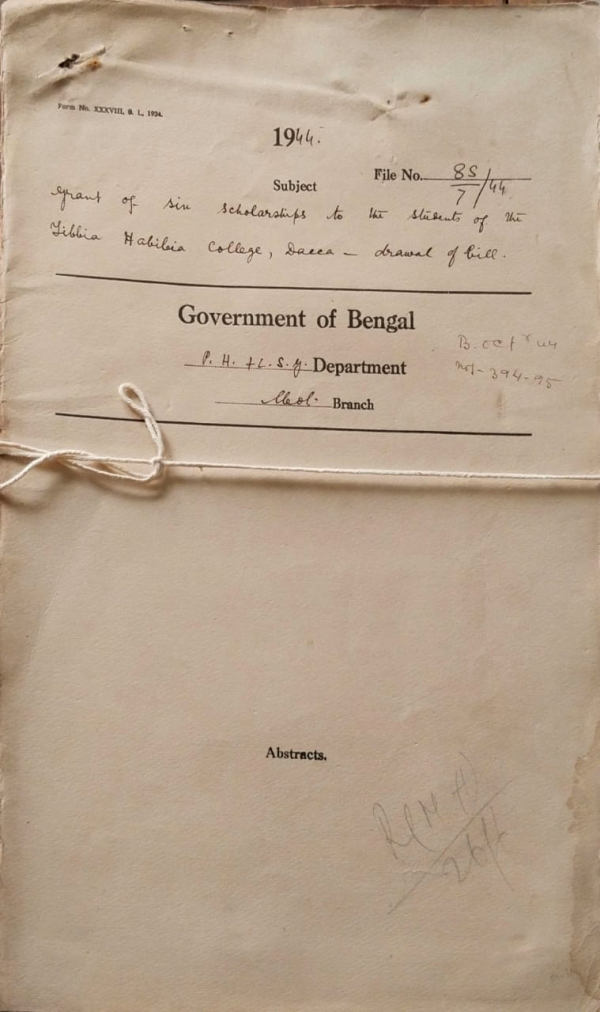 Form No. XXXVIII, B. I., 1924.
1944.
File No. 8S/7/44
Subject
Grant of six scholarships to the students of the
Tibbia Habibia College, Dacca — drawal of bill.
Government of Bengal
P. H. & L. S. G. Department
B. Octr 44
Nos- 394-95
Branch
Abstracts.